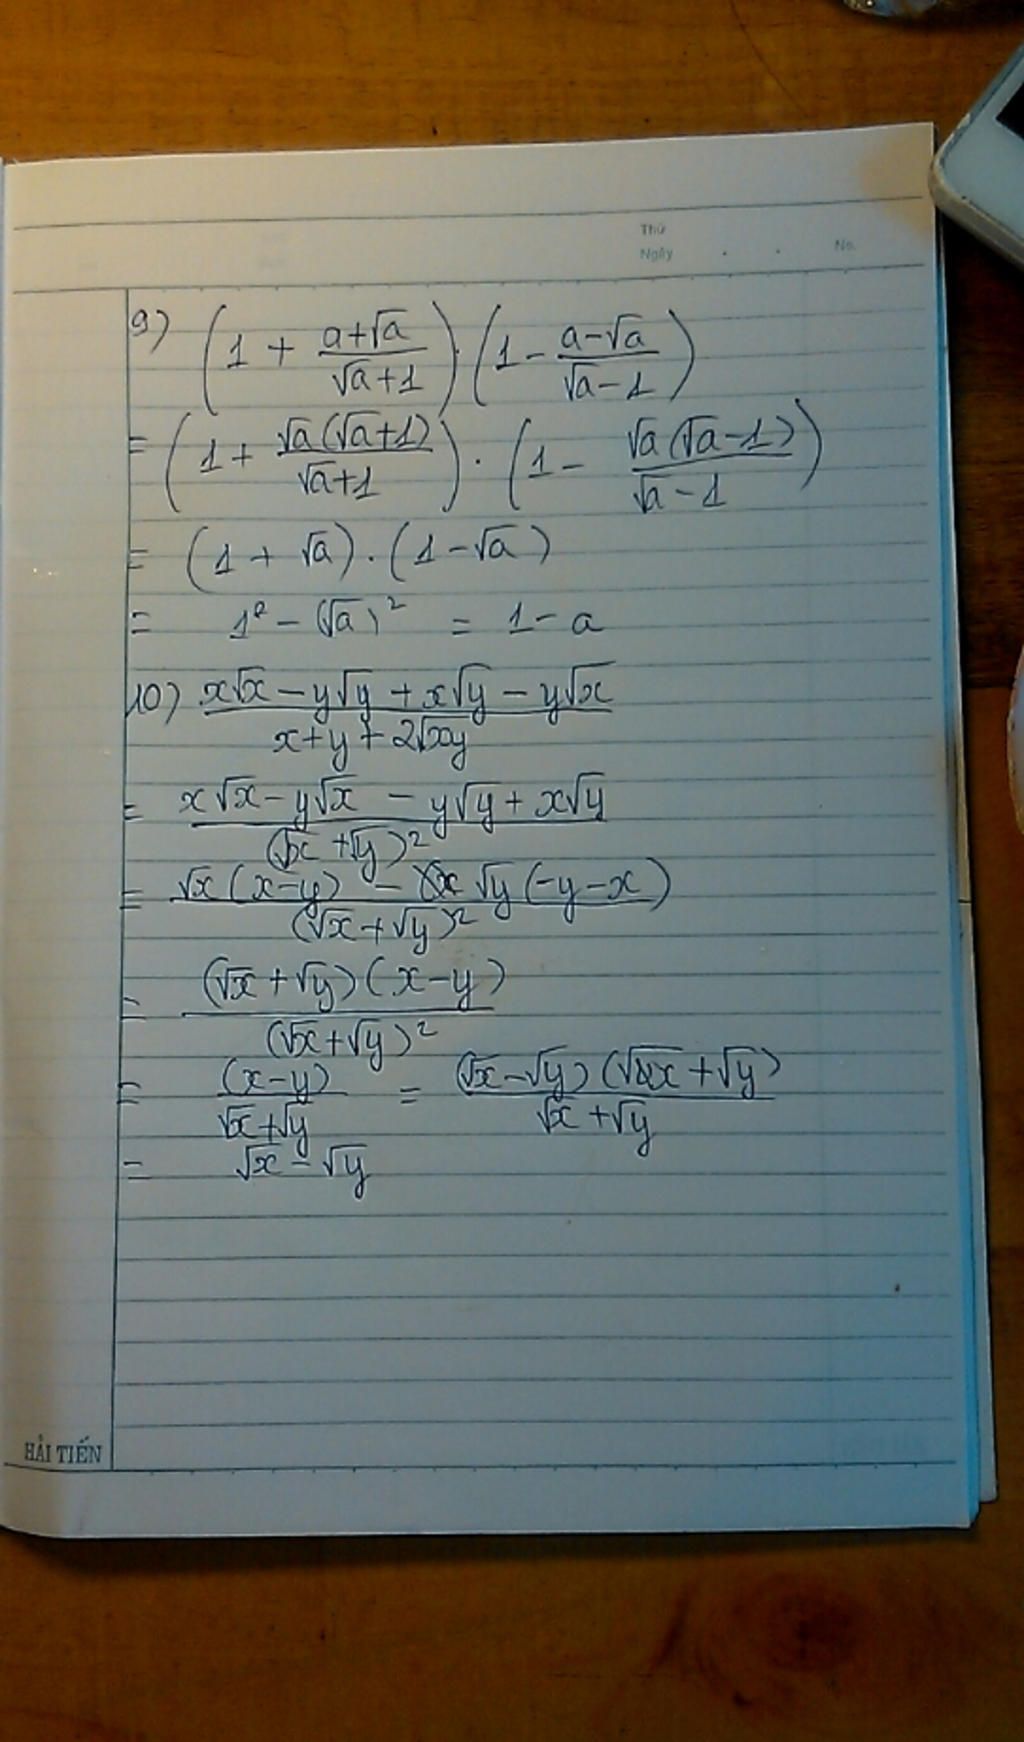 Thứ
Ngày . . No.
9) (1 + (a+√a)/(√a+1)) · (1 - (a-√a)/(√a-1))
= (1 + √a(√a+1)/(√a+1)) · (1 - √a(√a-1)/(√a-1))
= (1 + √a) · (1 - √a)
= 1² - (√a)² = 1 - a
10) (x√x - y√y + x√y - y√x)/(x+y+2√xy)
= (x√x - y√x - y√y + x√y)/(√x + √y)²
= (√x(x-y) - √y(-y-x))/(√x+√y)²
= (√x+√y)(x-y)/(√x+√y)²
= (x-y)/(√x+√y) = (√x-√y)(√x+√y)/(√x+√y)
= √x - √y
HẢI TIẾN